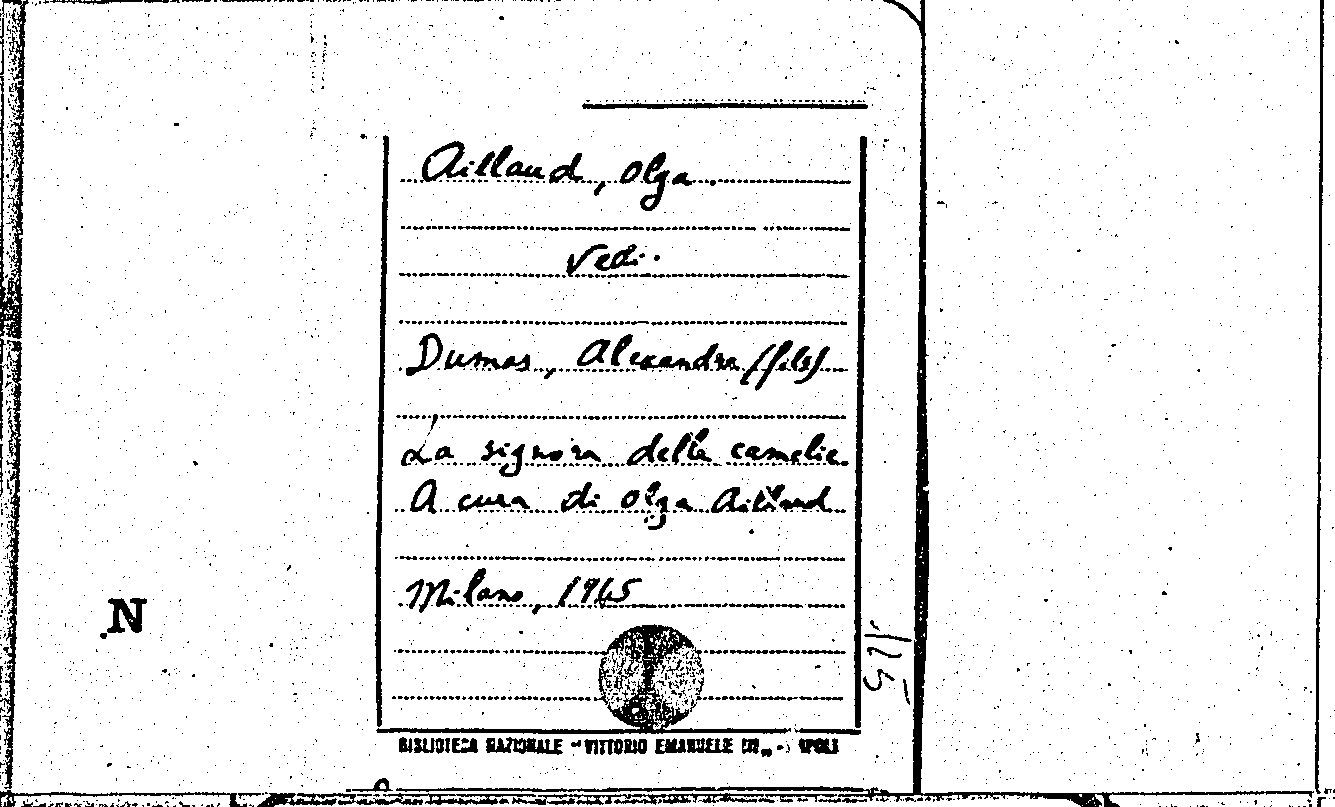 Aillaud, Olga.
Vedi.
Dumas, Alexandre (fils)
La signora delle camelie.
A cura di Olga Aillaud
Milano, 1965
N
BIBLIOTECA NAZIONALE "VITTORIO EMANUELE III" - NAPOLI